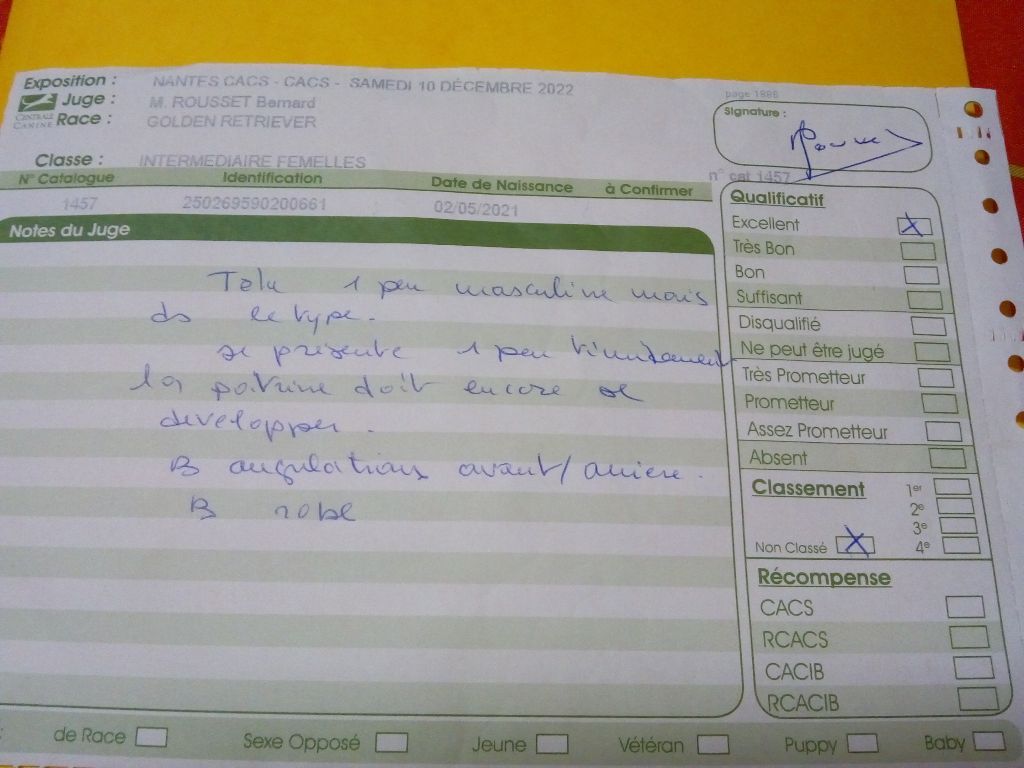 Exposition : NANTES CACS - CACS - SAMEDI 10 DÉCEMBRE 2022
Juge : M. ROUSSET Bernard
CENTRALE CANINE
Race : GOLDEN RETRIEVER
Classe : INTERMEDIAIRE FEMELLES
page 1886
Signature :
n° cat 1457
N° Catalogue Identification Date de Naissance à Confirmer
1457 250269590200661 02/05/2021
Notes du Juge
1 peu masculine mais
ds le type.
se présente 1 peu timidement
la poitrine doit encore se
developper.
B angulations avant/arriere.
B robe
Qualificatif
Excellent X
Très Bon
Bon
Suffisant
Disqualifié
Ne peut être jugé
Très Prometteur
Prometteur
Assez Prometteur
Absent
Classement 1er
2e
3e
Non Classé X 4e
Récompense
CACS
RCACS
CACIB
RCACIB
de Race Sexe Opposé Jeune Vétéran Puppy Baby